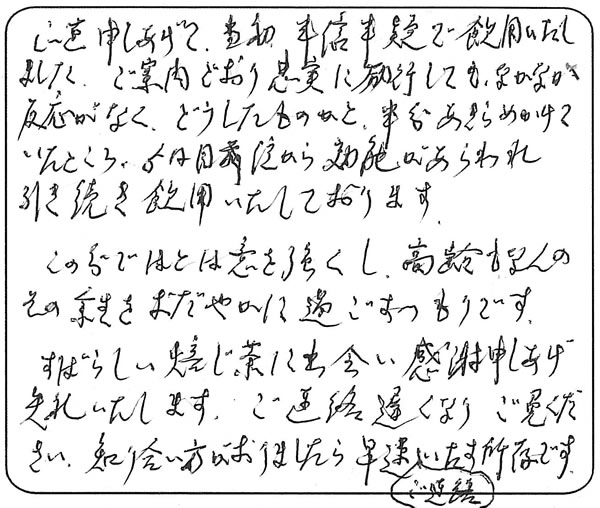 正直申しあげて、当初、半信半疑で飲用いたし
ました。ご案内どおり忠実に励行しても、なかなか
反応がなく、どうしたものかと、半分あきらめかけて
いたところ、
から効能があらわれ
引き続き飲用いたしております。
この分ではとは意を強くし、高齢もなんの
その余生をおだやかに過ごすつもりです。
すばらしい焙じ茶に出会い感謝申しあげ
失礼いたします。ご連絡遅くなりご免くだ
さい、知り合い方がおりましたら早速いたす所存です。
ご連絡